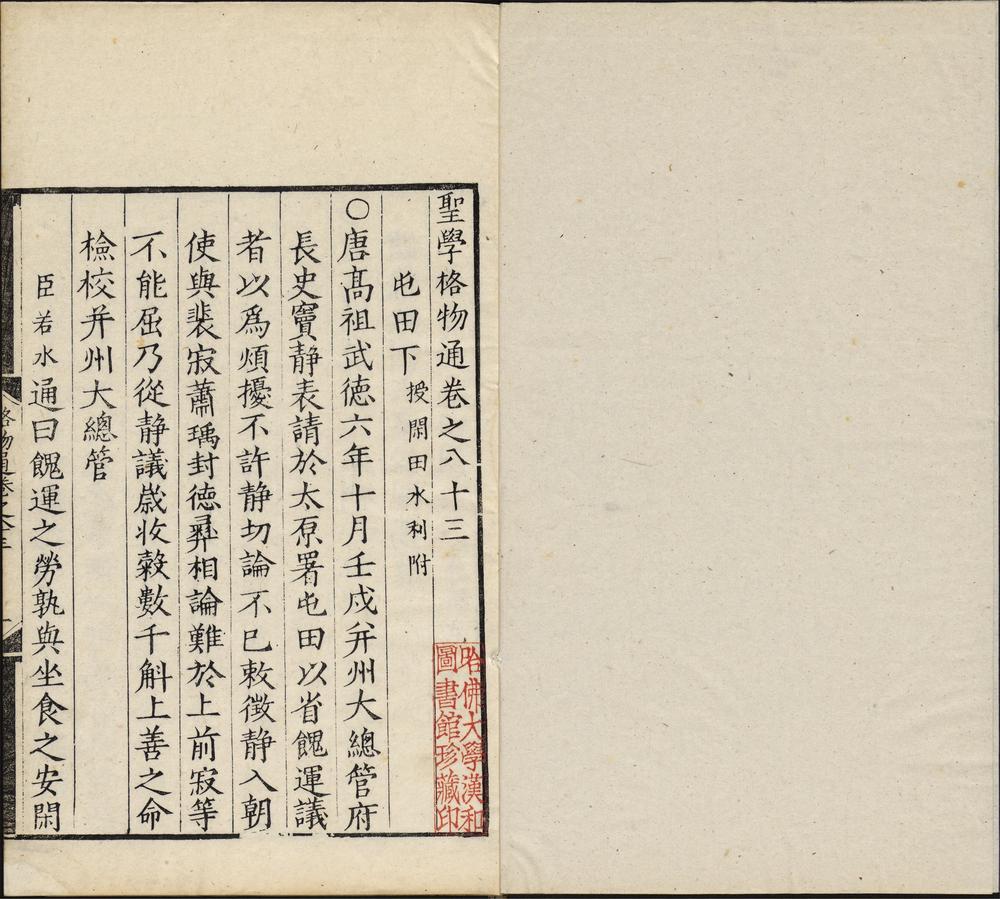 聖學格物通卷之八十三
屯田下授閑田水利附
○唐髙祖武徳六年十月壬戍并州大總管府
長史竇靜表請於太原署屯田以省餽運議
者以爲煩擾不許静切論不已敕徵静入朝
使與裴寂蕭瑀封徳彛相論難於上前寂等
不能屈乃從静議歳收糓數千斛上善之命
檢校并州大總管
臣若水通曰餽運之勞孰與坐食之安閑
格物通卷之八十三
一
哈佛大學漢和
圖書館珍藏印